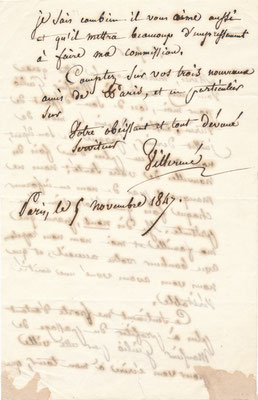 je sais combien il vous aime aussi
et qu'il mettra beaucoup d'empressement
à faire ma commission.
Comptez sur vos trois nouveaux
amis de Paris, et en particulier
sur
Votre obéissant et tout dévoué
serviteur
Villermé
Paris, le 5 novembre 1847.